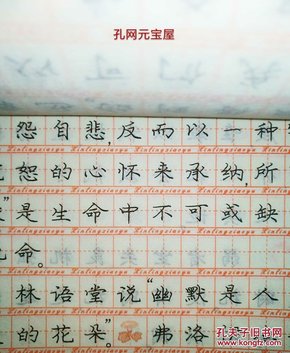 孔网元宝屋
怨自悲,反而以一种
恕的心怀来承纳,所
"是生命中不可或缺
命。
林语堂说"幽默是人
的花朵"。弗洛
Xinlingxiaoyu Xinlingxiaoyu Xinlingxiaoyu Xinlingxiaoyu
孔夫子旧书网